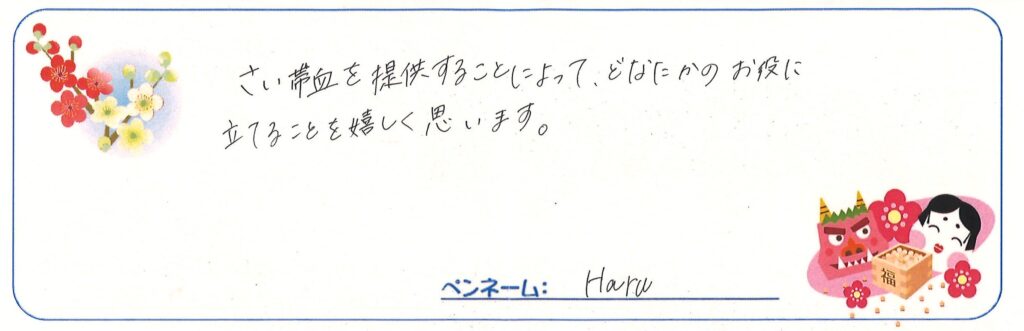 さい帯血を提供することによって、どなたかのお役に
立てることを嬉しく思います。
福
ペンネーム: Haru